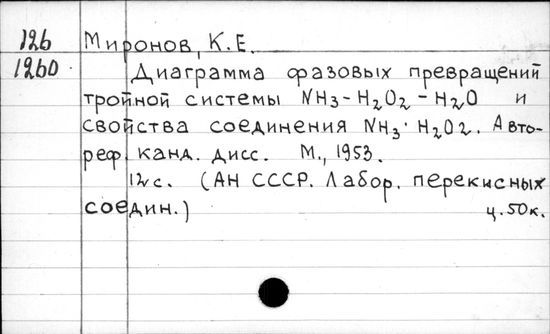 12б Миронов, К.Е.
12бО Диаграмма фазовых превращений
тройной системы NH3-H2O2-H2O и
свойства соединения NH3·H2O2. Авто-
реф. канд. дисс. М., 1953.
12 с. (АН СССР. Лабор. перекисных
соедин.) ц.50к.